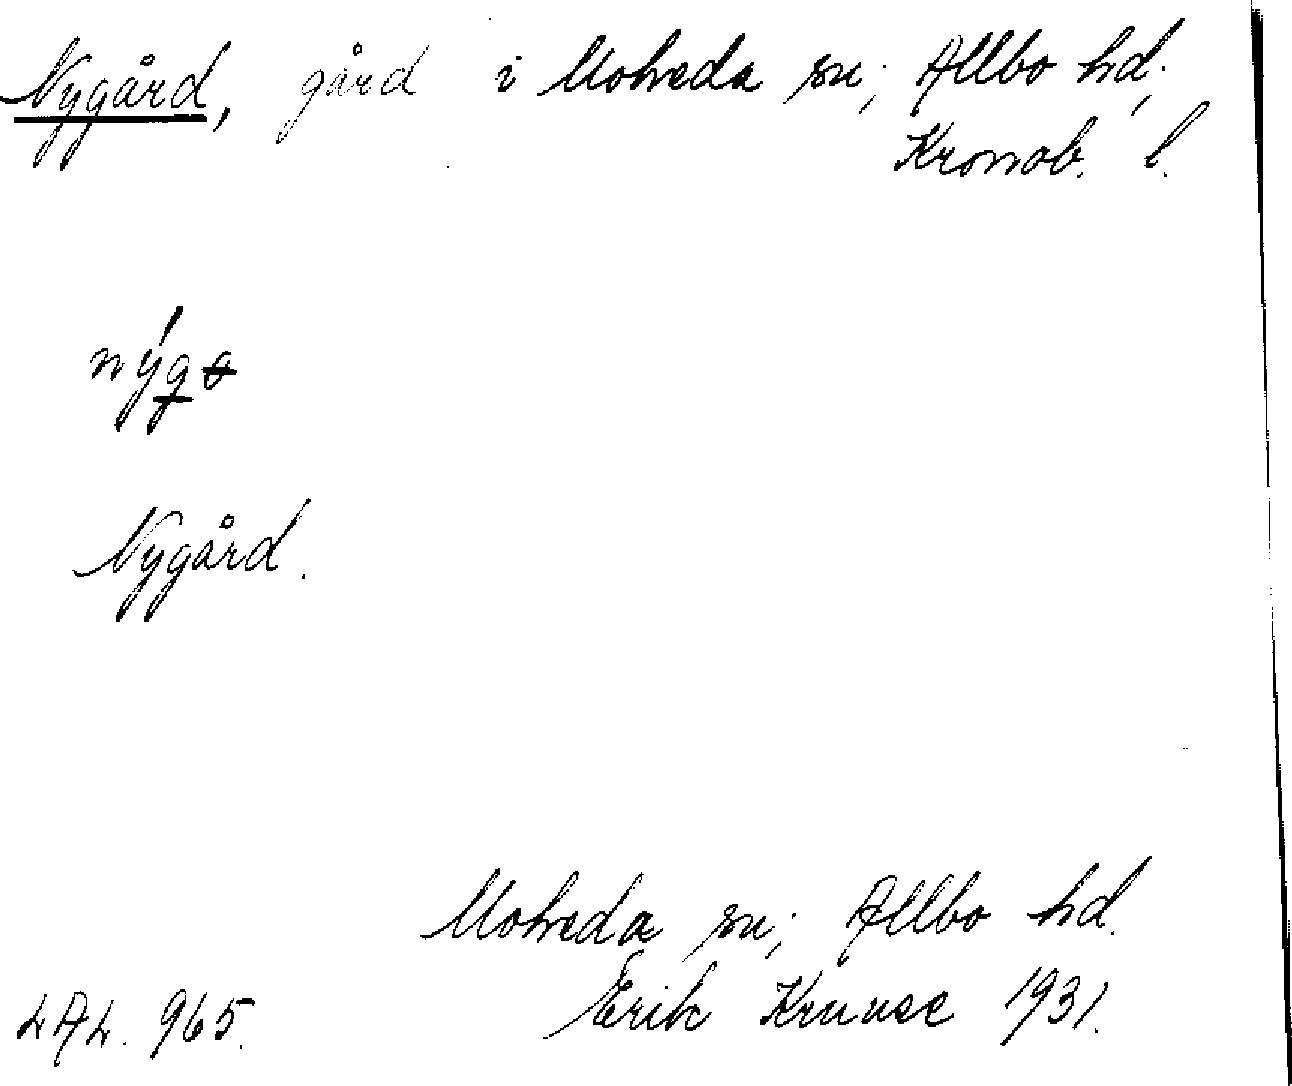 Nygård, gård i Moheda sn; Allbo hd;
Kronob. l.
Nygård.
Moheda sn; Allbo hd.
Erik Kruuse 1931.
LAL. 965.